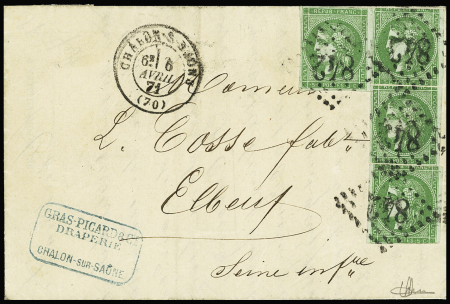 CHALON-S-SAONE
6E 6
AVRIL
71
(70)
REPUB. FRANC.
842
842
842
842
Monsieur
L. Cosse fabt.
Elbeuf
Seine infre
GRAS-PICARD & CIE
DRAPERIE
CHALON-SUR-SAÔNE